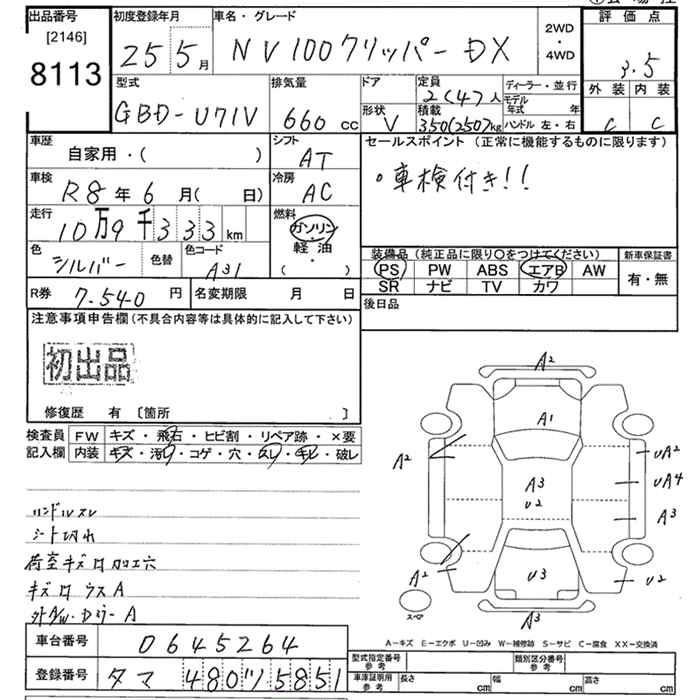 出品番号 初度登録年月 車名・グレード 2WD ・ 4WD 評価点
[2146] 8113 25年 5月 NV100クリッパー DX 3.5
型式 排気量 ドア 定員 ディーラー・並行 外装 内装
GBD-U71V 660cc 形状 V 2(4)人 積載 350(250)kg モデル年式 年 ハンドル 左・右 C C
車歴 自家用・( ) シフト AT セールスポイント(正常に機能するものに限ります)
車検 R8年 6月( 日) 冷房 AC 。車検付き!!
走行 10万9千333km 燃料 ガソリン・軽油・( )
色 シルバー 色替 色コード A31 装備品(純正品に限り○をつけてください) 新車保証書
PS PW ABS エアB AW 有・無
SR ナビ TV カワ
R券 7.540円 名変期限 月 日 後日品
注意事項申告欄(不具合内容等は具体的に記入して下さい)
初出品
修復歴 有 〔箇所 〕
検査員 FW キズ・飛石・ヒビ割・リペア跡・×要
記入欄 内装 キズ・汚レ・コゲ・穴・スレ・キレ・破レ
ハンドルスレ
シート切れ
荷室キズ ロ加工穴
キズロ ウスA
A2
A1
A2 UA2
A3 UA4
U2 A3
A2 U3 U2
スペア A3
A-キズ E-エクボ U-凹み W-補修跡 S-サビ C-腐食 XX-交換済
車台番号 0645264
型式指定番号 参考 類別区分番号 参考
登録番号 タマ 480ツ5851
車庫証明用 参考 長さ cm 幅 cm 高さ cm